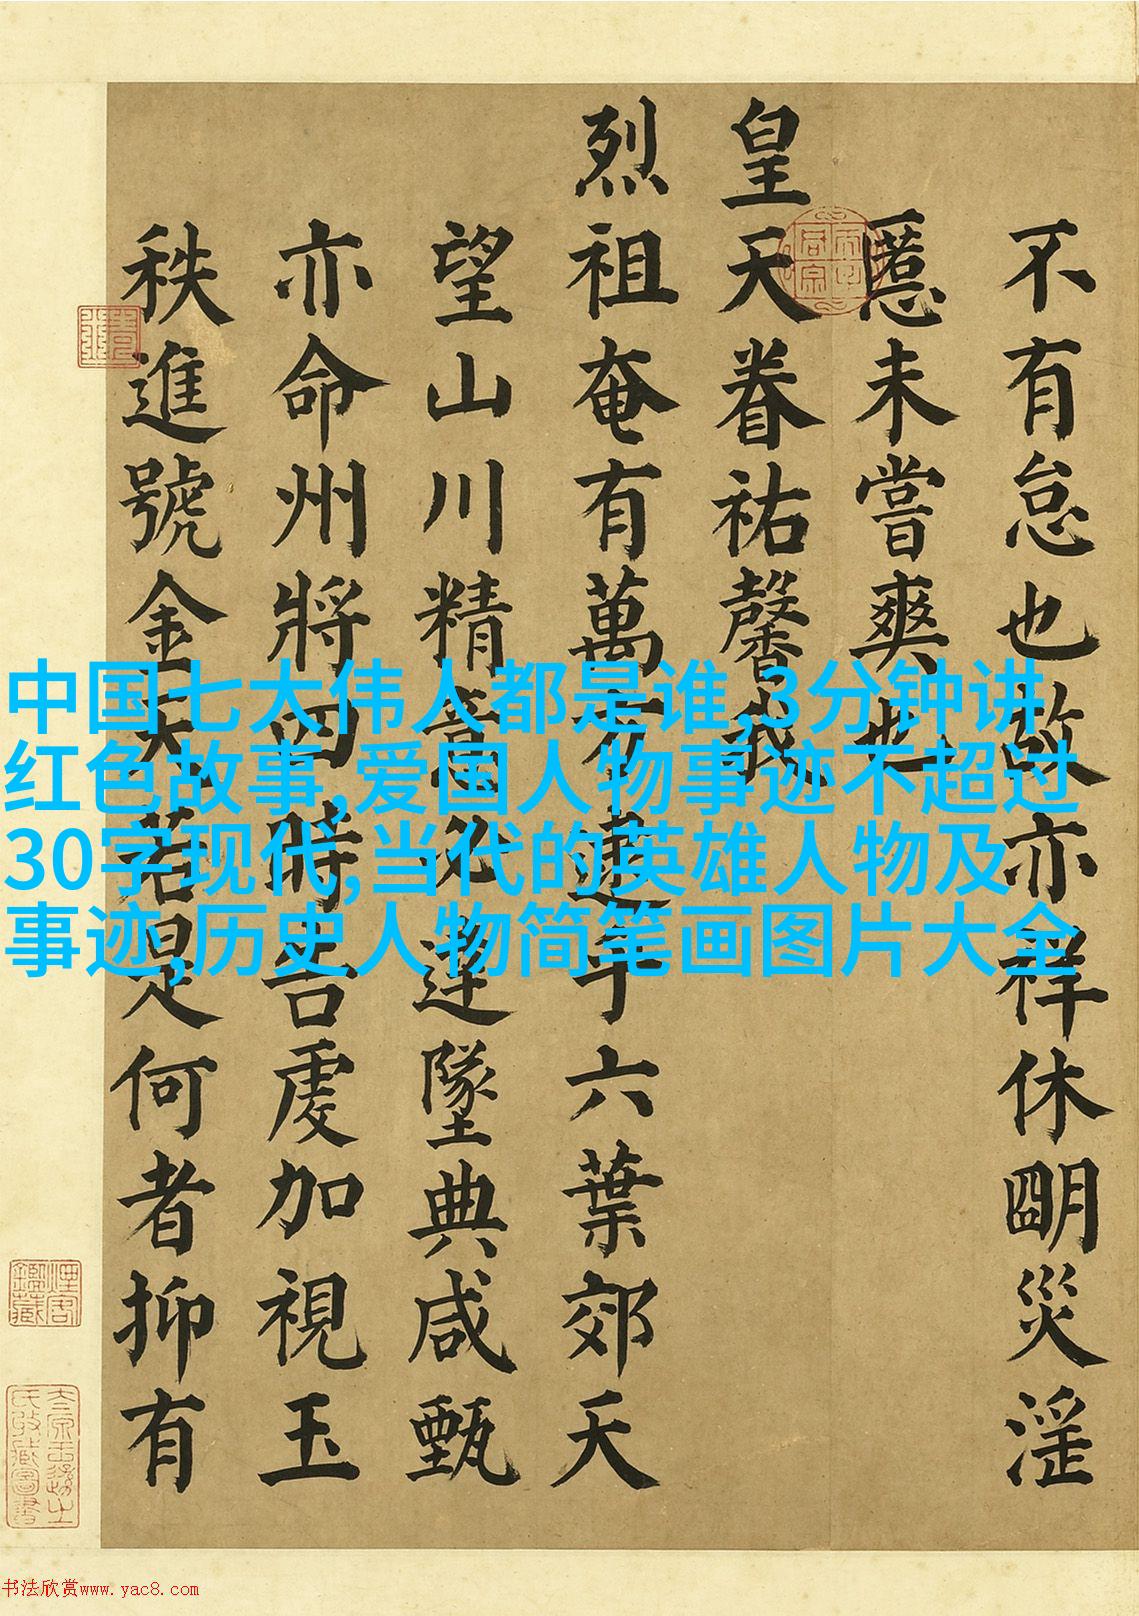 不有怠也故亦祥休明災淫
慝未嘗爽也
皇天眷祐馨我
烈祖奄有萬方逮于六葉郊天
望山川精意以達墜典咸甄
亦命州將四時告虔加視王
秩進號金天若是何者抑有
中国七大伟人都是谁,3分钟讲
红色故事,爱国人物事迹不超过
30字现代,当代的英雄人物及
事迹,历史人物简笔画图片大全
书法欣赏www.yac8.com